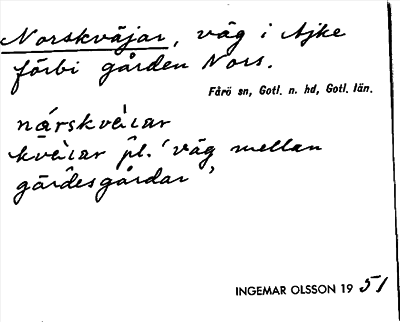 Norskväjar, väg i Ajke
förbi gården Nors.
Fårö sn, Gotl. n. hd, Gotl. län.
nårskvèiar
kvèiar pl. 'väg mellan
gärdesgårdar'
INGEMAR OLSSON 1951